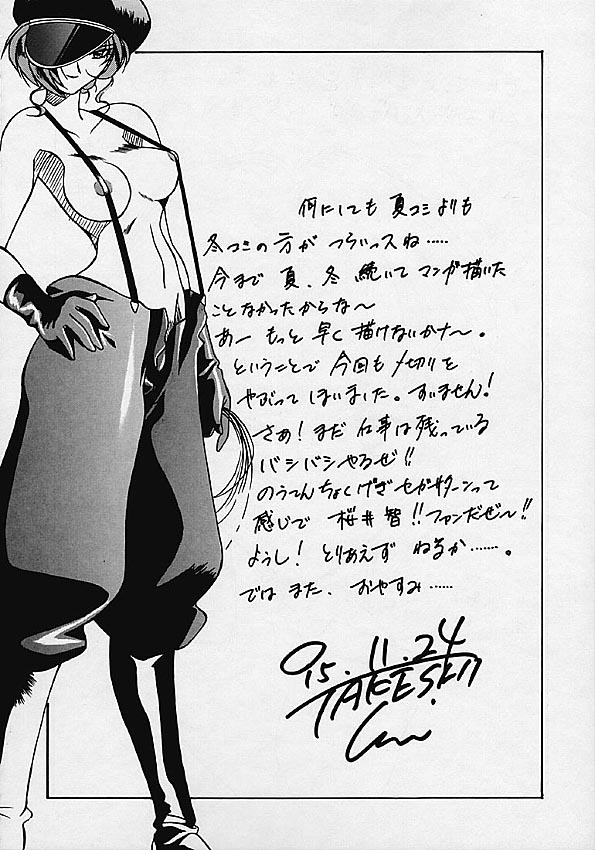 何にしても 夏コミよりも
冬コミの方が つらいっスね……
今まで 夏、冬 続いて マンガ描いた
ことなかったからな〜
あー もっと 早く 描けないかナ〜。
ということで 今回も 〆切りを
やぶって しまいました。すいません!
さぁ! まだ 仕事は残っている
バシバシやるぜ!!
のうてんちょくげき セガサターンって
感じで 桜井智!! ファンだぜ〜!!
ようし! とりあえず ねるか……。
では また、おやすみ……
'95.11.24
TAKEESHI